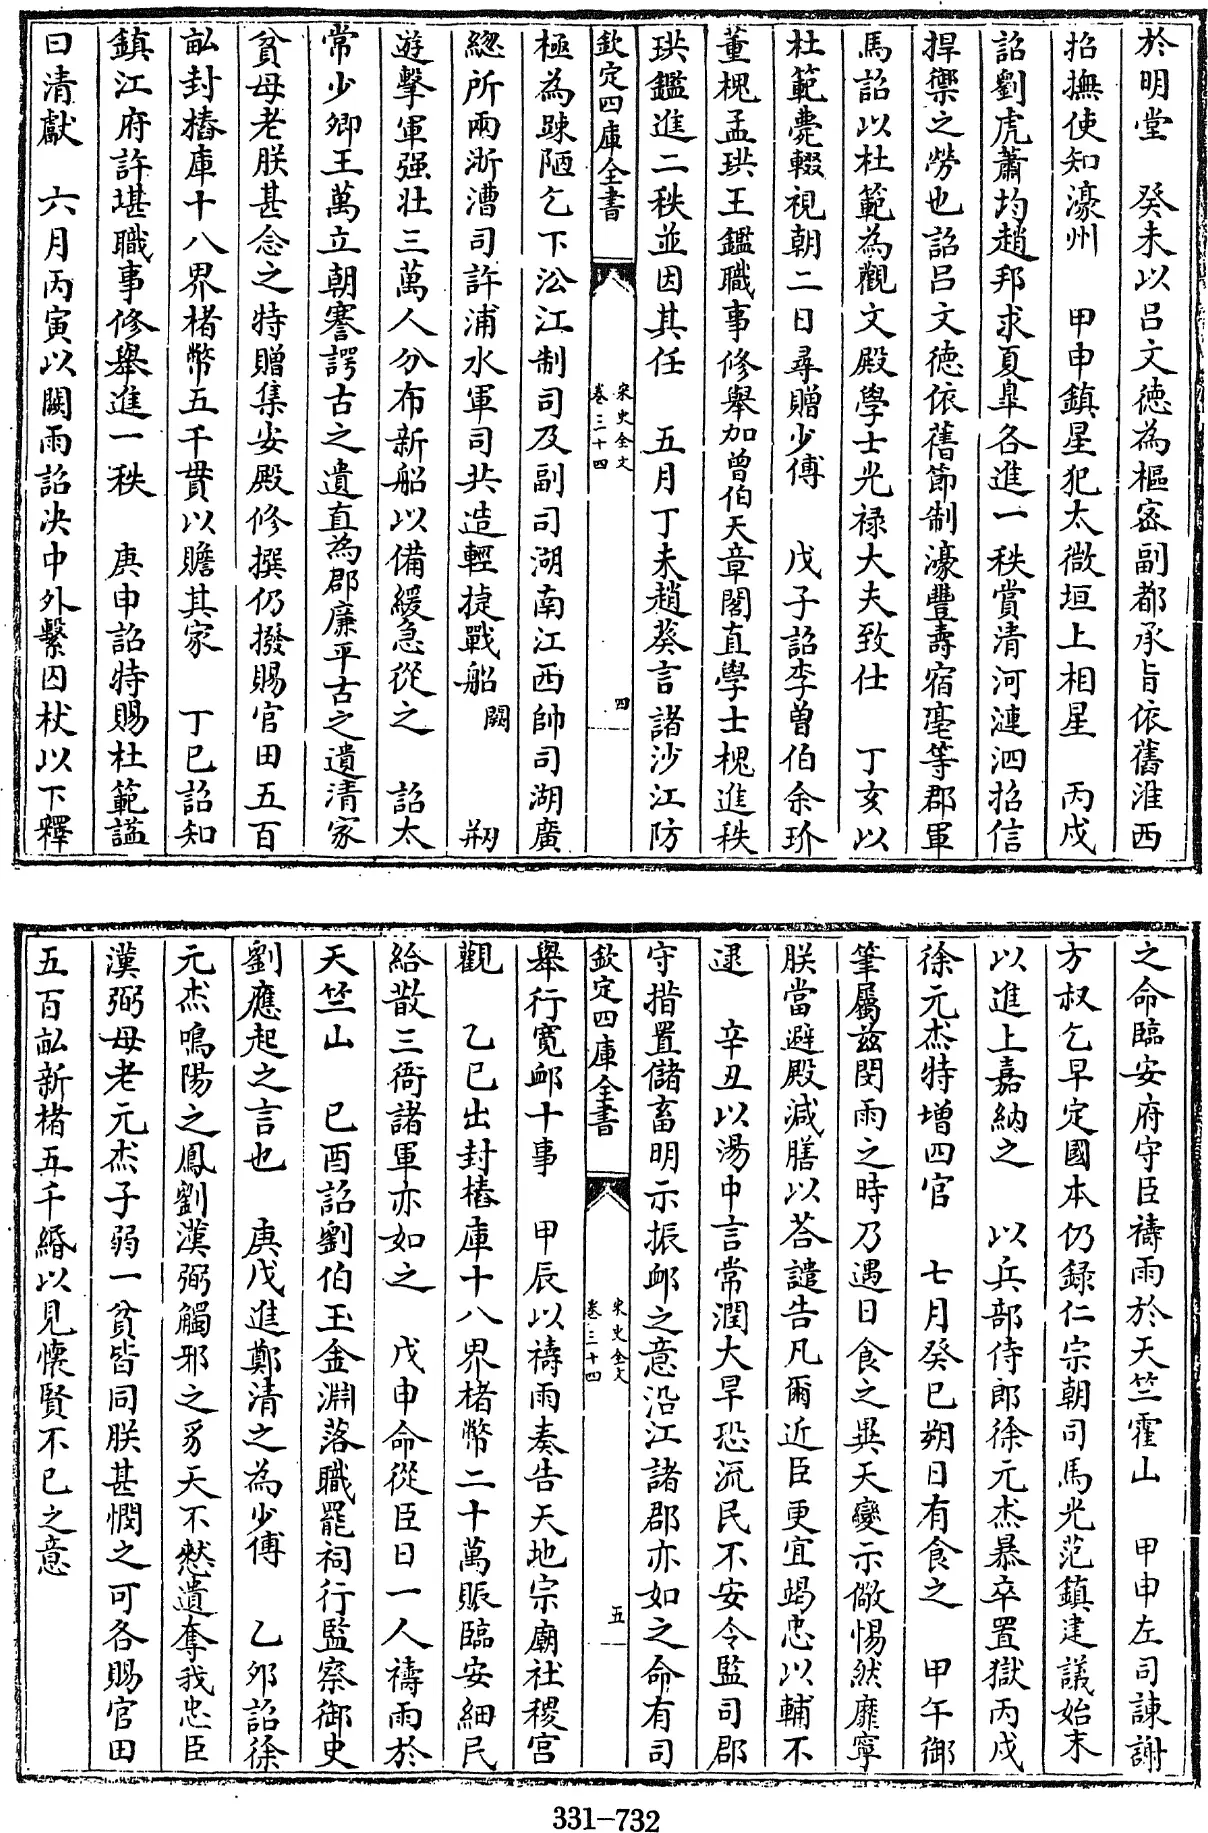 於明堂　癸未以吕文德為樞密副都承旨依舊淮西
招撫使知濠州　甲申鎮星犯太微垣上相星　丙戌
詔劉虎蕭均趙邦求夏臯各進一秩賞清河漣泗招信
捍禦之勞也詔吕文德依舊節制濠豐壽宿亳等郡軍
馬詔以杜範為觀文殿學士光禄大夫致仕　丁亥以
杜範薨輟視朝二日尋贈少傅　戊子詔李曽伯余玠
董槐孟珙王鑑職事修舉加曽伯天章閣直學士槐進秩
珙鑑進二秩並因其任　五月丁未趙葵言諸沙江防
欽定四庫全書
宋史全文
卷三十四
四
極為踈陋乞下㳂江制司及副司湖南江西帥司湖廣
緫所兩浙漕司許浦水軍司共造輕捷戰船闕　剏
遊擊軍强壯三萬人分布新船以備緩急從之　詔太
常少卿王萬立朝謇諤古之遺直為郡廉平古之遺清家
貧母老朕甚念之特贈集英殿修撰仍撥賜官田五百
畝封樁庫十八界楮幣五千貫以贍其家　丁巳詔知
鎮江府許堪職事修舉進一秩　庚申詔特賜杜範諡
曰清獻　六月丙寅以闕雨詔决中外繫囚杖以下釋
之命臨安府守臣禱雨於天竺霍山　甲申左司諫謝
方叔乞早定國本仍録仁宗朝司馬光范鎮建議始末
以進上嘉納之　以兵部侍郎徐元杰暴卒置獄丙戌
徐元杰特增四官　七月癸巳朔日有食之　甲午御
筆屬兹閔雨之時乃遇日食之異天變示儆惕然靡寧
朕當避殿減膳以荅譴告凡爾近臣更宜竭忠以輔不
逮　辛丑以湯中言常潤大旱恐流民不安令監司郡
守措置儲畜明示振邺之意沿江諸郡亦如之命有司
欽定四庫全書
宋史全文
卷三十四
五
舉行寛邺十事　甲辰以禱雨奏告天地宗廟社稷宮
觀　乙巳出封樁庫十八界楮幣二十萬賑臨安細民
給散三衙諸軍亦如之　戊申命從臣日一人禱雨於
天竺山　己酉詔劉伯玉金淵落職罷祠行監察御史
劉應起之言也　庚戌進鄭清之為少傅　乙卯詔徐
元杰鳴陽之鳳劉漢弼觸邪之豸天不憗遺奪我忠臣
漢弼母老元杰子弱一貧皆同朕甚憫之可各賜官田
五百畝新楮五千緡以見懷賢不已之意
331-732